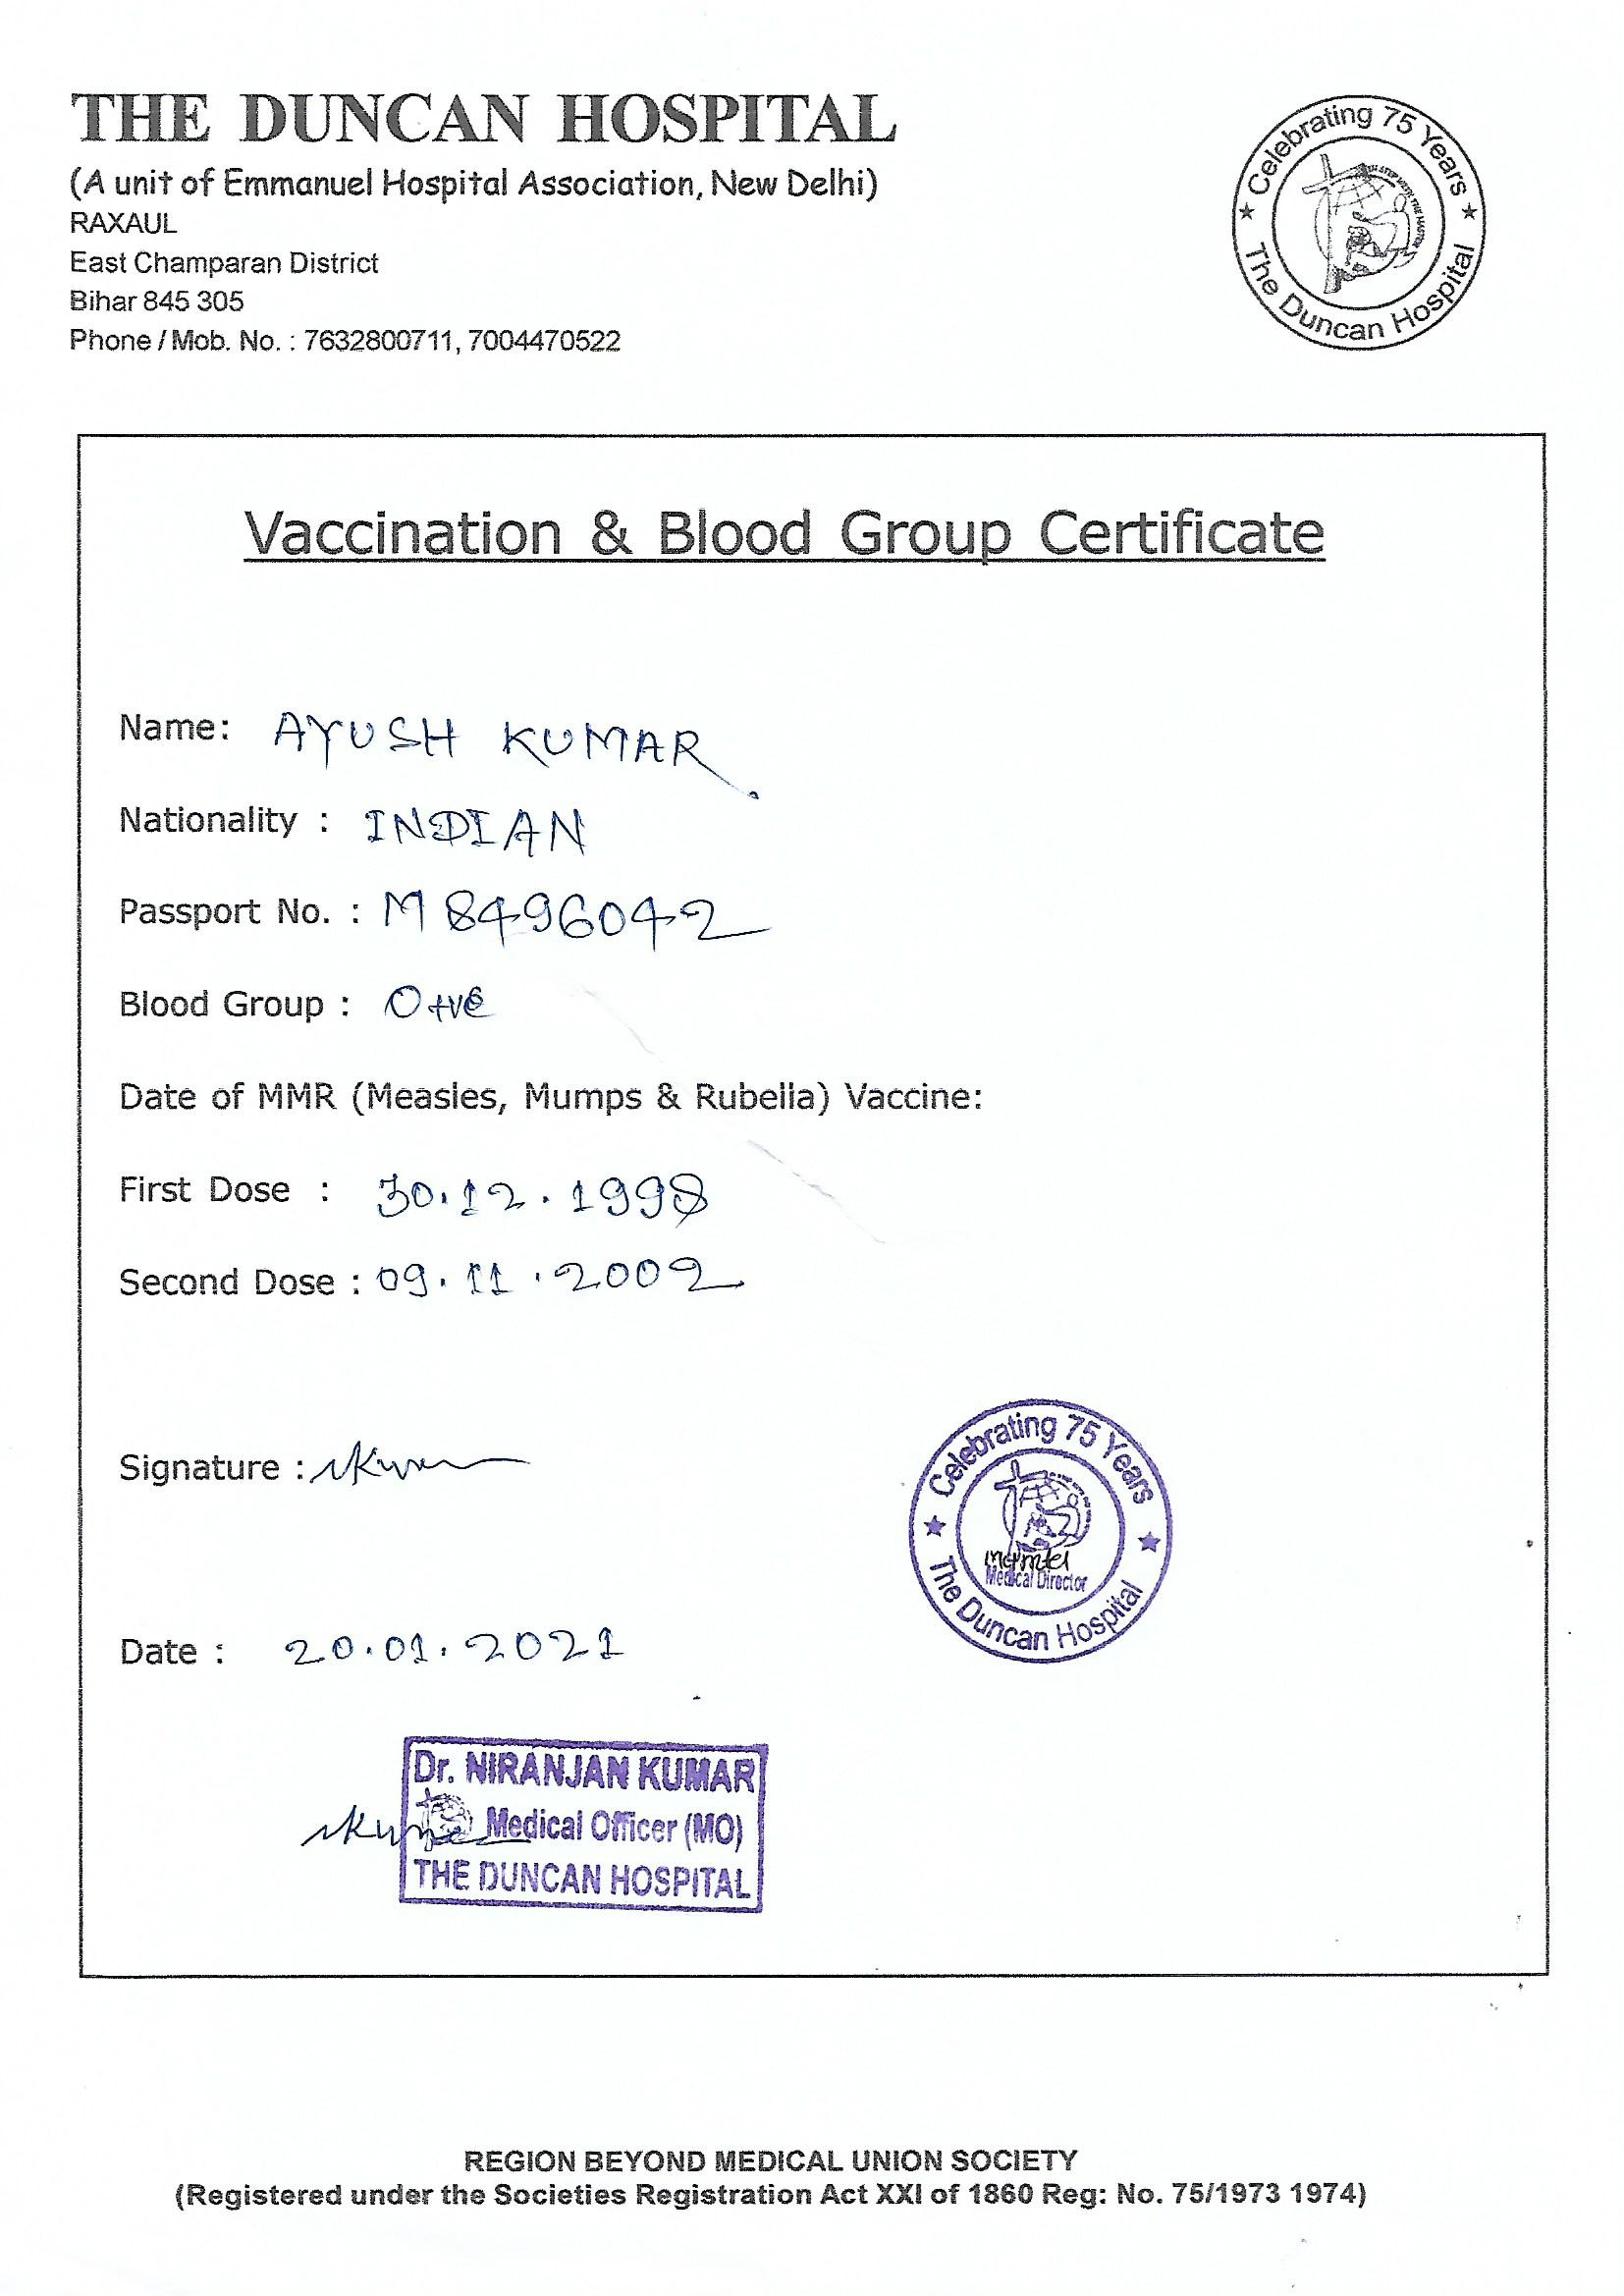 THE DUNCAN HOSPITAL
(A unit of Emmanuel Hospital Association, New Delhi)
RAXAUL
East Champaran District
Bihar 845 305
Phone / Mob. No. : 7632800711, 7004470522
★ Celebrating 75 Years ★
The Duncan Hospital
Vaccination & Blood Group Certificate
Name: AYUSH KUMAR
Nationality : INDIAN
Passport No. : M8496042
Blood Group : O+ve
Date of MMR (Measles, Mumps & Rubella) Vaccine:
First Dose : 30.12.1998
Second Dose : 09.11.2002
Signature :
★ Celebrating 75 Years ★
Medical Director
The Duncan Hospital
Date : 20.01.2021
Dr. NIRANJAN KUMAR
Medical Officer (MO)
THE DUNCAN HOSPITAL
REGION BEYOND MEDICAL UNION SOCIETY
(Registered under the Societies Registration Act XXI of 1860 Reg: No. 75/1973 1974)